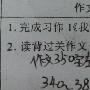 作文
1. 完成习作《我
2. 读背过关作文
作文350字
340~38